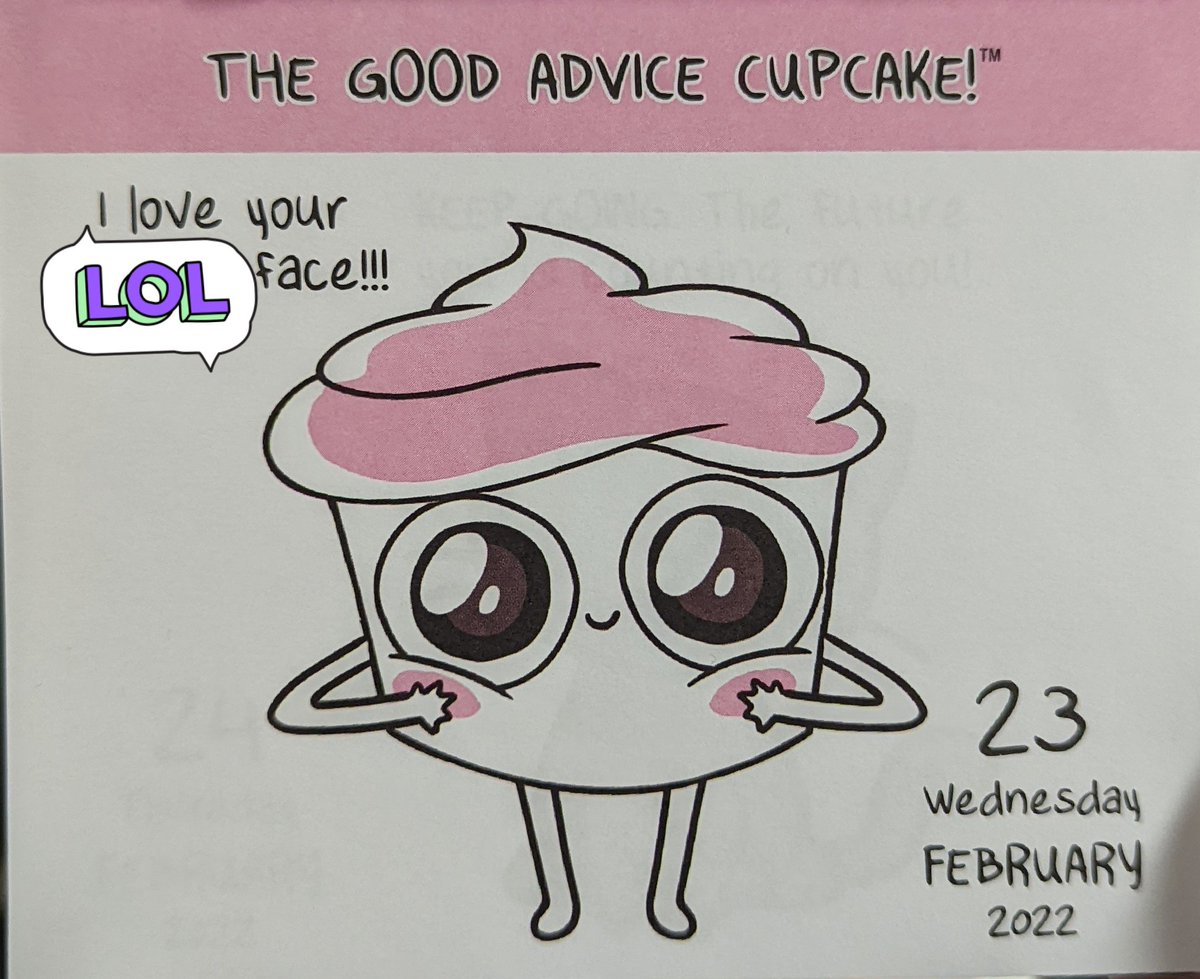 THE GOOD ADVICE CUPCAKE!™
I love your
LOL face!!!
23
Wednesday
FEBRUARY
2022